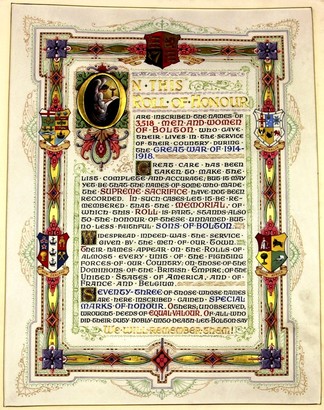 ON THIS
ROLL OF HONOUR
ARE INSCRIBED THE NAMES OF
3,518 MEN AND WOMEN
OF BOLTON WHO GAVE
THEIR LIVES IN THE SERVICE
OF THEIR COUNTRY DURING
THE GREAT WAR OF 1914-
1918.
GREAT CARE HAS BEEN
TAKEN TO MAKE THE
LIST COMPLETE AND ACCURATE; BUT IT MAY
YET BE THAT THE NAMES OF SOME WHO MADE
THE SUPREME SACRIFICE HAVE NOT BEEN
RECORDED. IN SUCH CASES LET IT BE RE-
MEMBERED THAT THE MEMORIAL, OF
WHICH THIS ROLL IS PART, STANDS ALSO
TO THE HONOUR OF THESE UNNAMED BUT
NO LESS FAITHFUL SONS OF BOLTON.
WIDESPREAD INDEED WAS THE SERVICE
GIVEN BY THE MEN OF OUR TOWN.
THEIR NAMES APPEAR ON THE ROLLS OF
ALMOST EVERY UNIT OF THE FIGHTING
FORCES OF OUR COUNTRY, ON THOSE OF THE
DOMINIONS OF THE BRITISH EMPIRE, OF THE
UNITED STATES OF AMERICA, AND OF
FRANCE AND BELGIUM.
SEVENTY-THREE OF THOSE WHOSE NAMES
ARE HERE INSCRIBED GAINED SPECIAL
MARKS OF HONOUR. OTHERS, UNOBSERVED,
WROUGHT DEEDS OF EQUAL VALOUR. OF ALL WHO
DID THEIR DUTY NOBLY UNTO DEATH LET BOLTON SAY
WE WILL REMEMBER THEM!